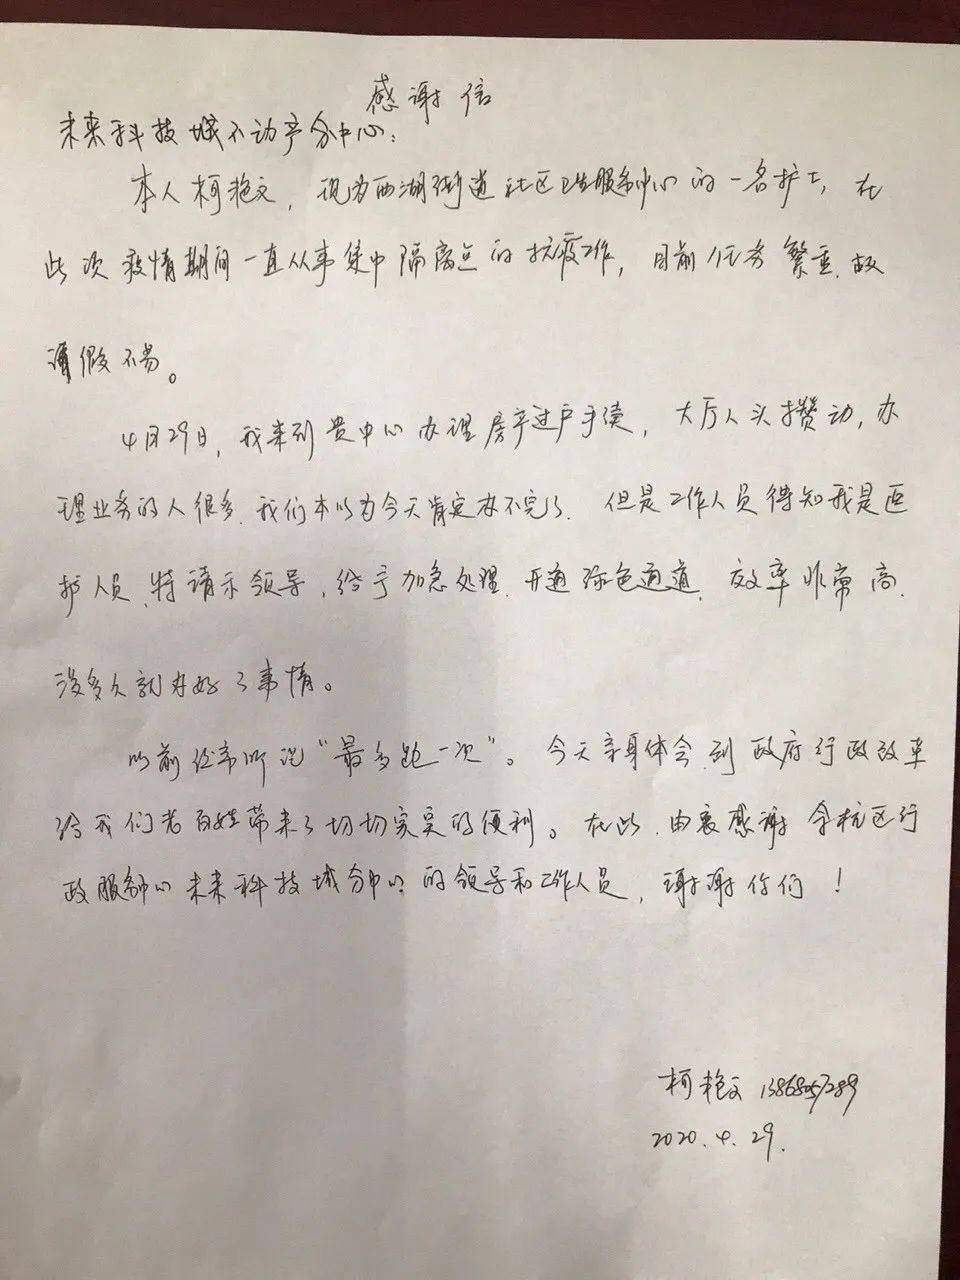 感谢信
未来科技城不动产分中心：
本人柯艳文，现为西湖街道社区卫生服务中心的一名护士，在
此次疫情期间一直从事集中隔离点的抗疫工作，目前任务繁重，故
请假不易。
4月29日，我来到贵中心办理房产过户手续，大厅人头攒动，办
理业务的人很多，我们本以为今天肯定办不完了，但是工作人员得知我是医
护人员，特请示领导，给予加急处理，开通绿色通道，效率非常高，
没多久就办好了事情。
以前经常听说“最多跑一次”。今天亲身体会到政府行政改革
给我们老百姓带来了切切实实的便利。在此，由衷感谢余杭区行
政服务中心未来科技城分中心的领导和工作人员，谢谢你们！
柯艳文 13868057289
2020.4.29.